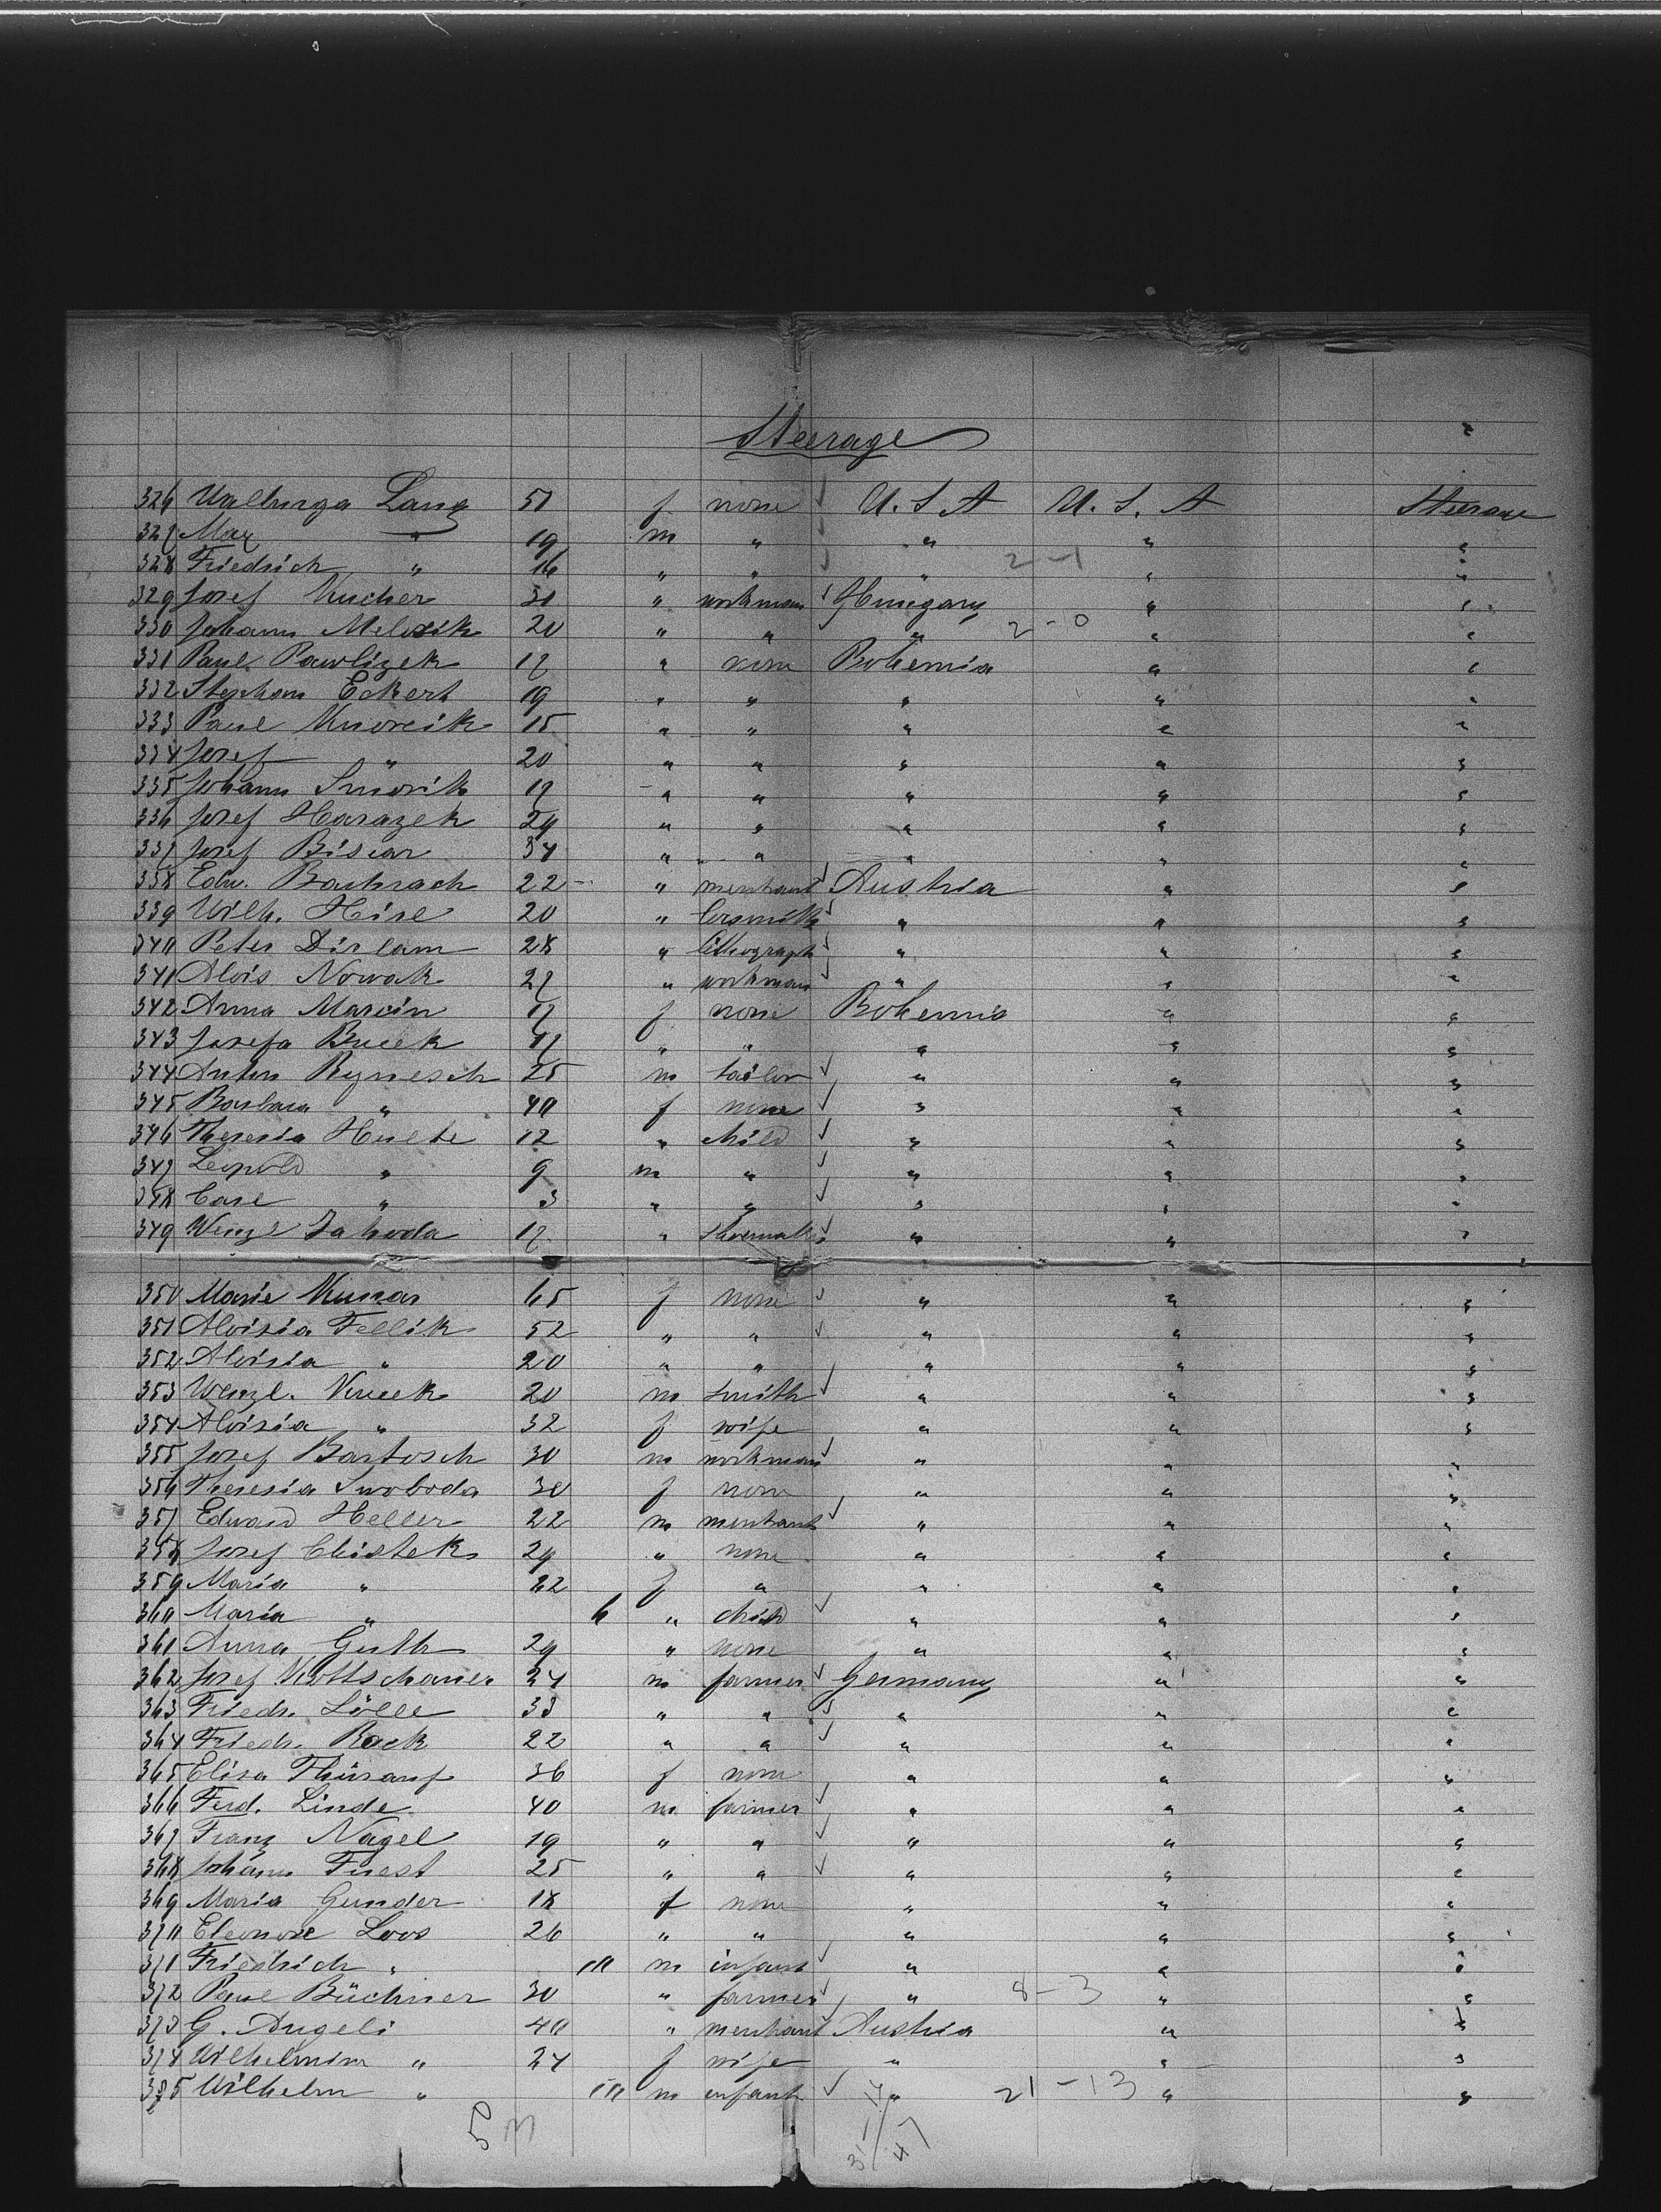 Steerage
326 Walburga Lang 51 f none U.S.A U.S.A Steerage
327 Max " 19 m " " " "
328 Friedrich " 16 " " " 2-1 " "
329 Josef Kucher 31 " workman Hungary " "
330 Johann 20 " " " 2-0 " "
331 Paul Pawlizek 17 " none Bohemia " "
332 Stephan Eckert 19 " " " " "
333 Paul 15 " " " " "
334 Josef " 20 " " " " "
335 Johann 17 " " " " "
336 Josef Harazek 29 " " " " "
337 Josef 34 " " " " "
338 Edw. Bachrach 22 " merchant Austria " "
339 Wilh. 20 " " " "
340 Peter Dirlam 28 " lithograph " " "
341 Alois Nowak 27 " workman " " "
342 Anna Marcin 17 f none Bohemia " "
343 Josefa 47 " " " " "
344 Anton Rynesch 25 m tailor " " "
345 Barbara " 40 f none " " "
346 Theresia 12 " child " " "
347 Leopold " 9 m " " " "
348 Carl " 3 " " " " "
349 Wenzl Jahoda 17 " shoemaker " " "
350 Marie 65 f none " " "
351 Aloisia Fellik 52 " " " " "
352 Aloisia " 20 " " " " "
353 Wenzl. 20 m smith " " "
354 Aloisia " 32 f wife " " "
355 Josef Bartosch 30 m workman " " "
356 Theresia Swoboda 30 f none " " "
357 Eduard Heller 22 m merchant " " "
358 Josef 29 " none " " "
359 Maria " 22 f " " " "
360 Maria " 6 " child " " "
361 Anna Guth 29 " none " " "
362 Josef 24 m farmer Germany " "
363 Friedr. Lölle 33 " " " " "
364 Friedr. Rock 22 " " " " "
365 Elisa Thürauf 36 f none " " "
366 Ferd. Linde 40 m farmer " " "
367 Franz Nagel 19 " " " " "
368 Johann Fuest 25 " " " " "
369 Maria Gunder 18 f none " " "
370 Eleonore Loos 26 " " " " "
371 Friedrich " m infant " " "
372 Paul Büchner 30 " farmer " 8-3 " "
373 G. Angeli 40 " merchant Austria " "
374 Wilhelmine " 24 f wife " " "
375 Wilhelm " m infant " 21-13 " "